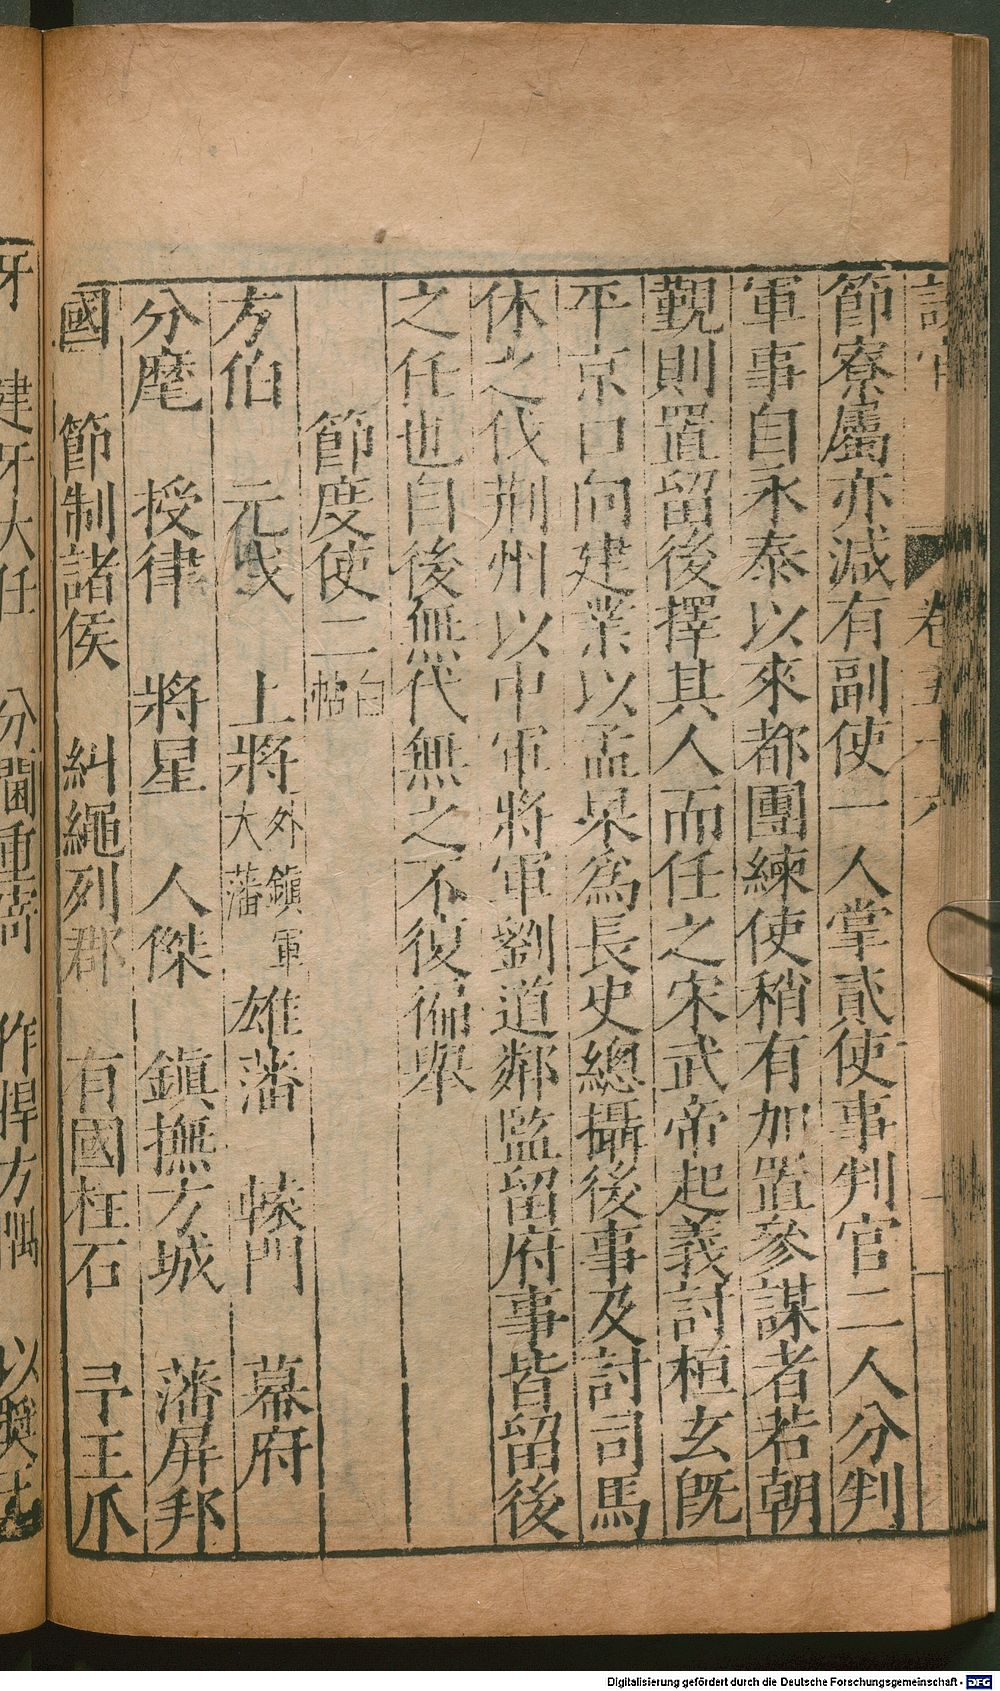 節寮屬亦減有副使一人掌貳使事判官二人分判
軍事自永泰以來都團練使稍有加置參謀者若朝
覲則置留後擇其人而任之宋武帝起義討桓玄既
平京口向建業以孟杲為長史總攝後事及討司馬
休之伐荊州以中軍將軍劉道鄰監留府事皆留後
之任也自後無代無之不復徧舉
節度使二白帖
方伯 元戎 上將外鎮軍大藩 雄藩 轅門 幕府
分麾 授律 將星 人傑 鎮撫方城 藩屏邦
國 節制諸侯 糾繩列郡 有國柱石 予王爪
牙 建牙大任 分閫重寄 作捍方隅 以奬
Digitalisierung gefördert durch die Deutsche Forschungsgemeinschaft - DFG